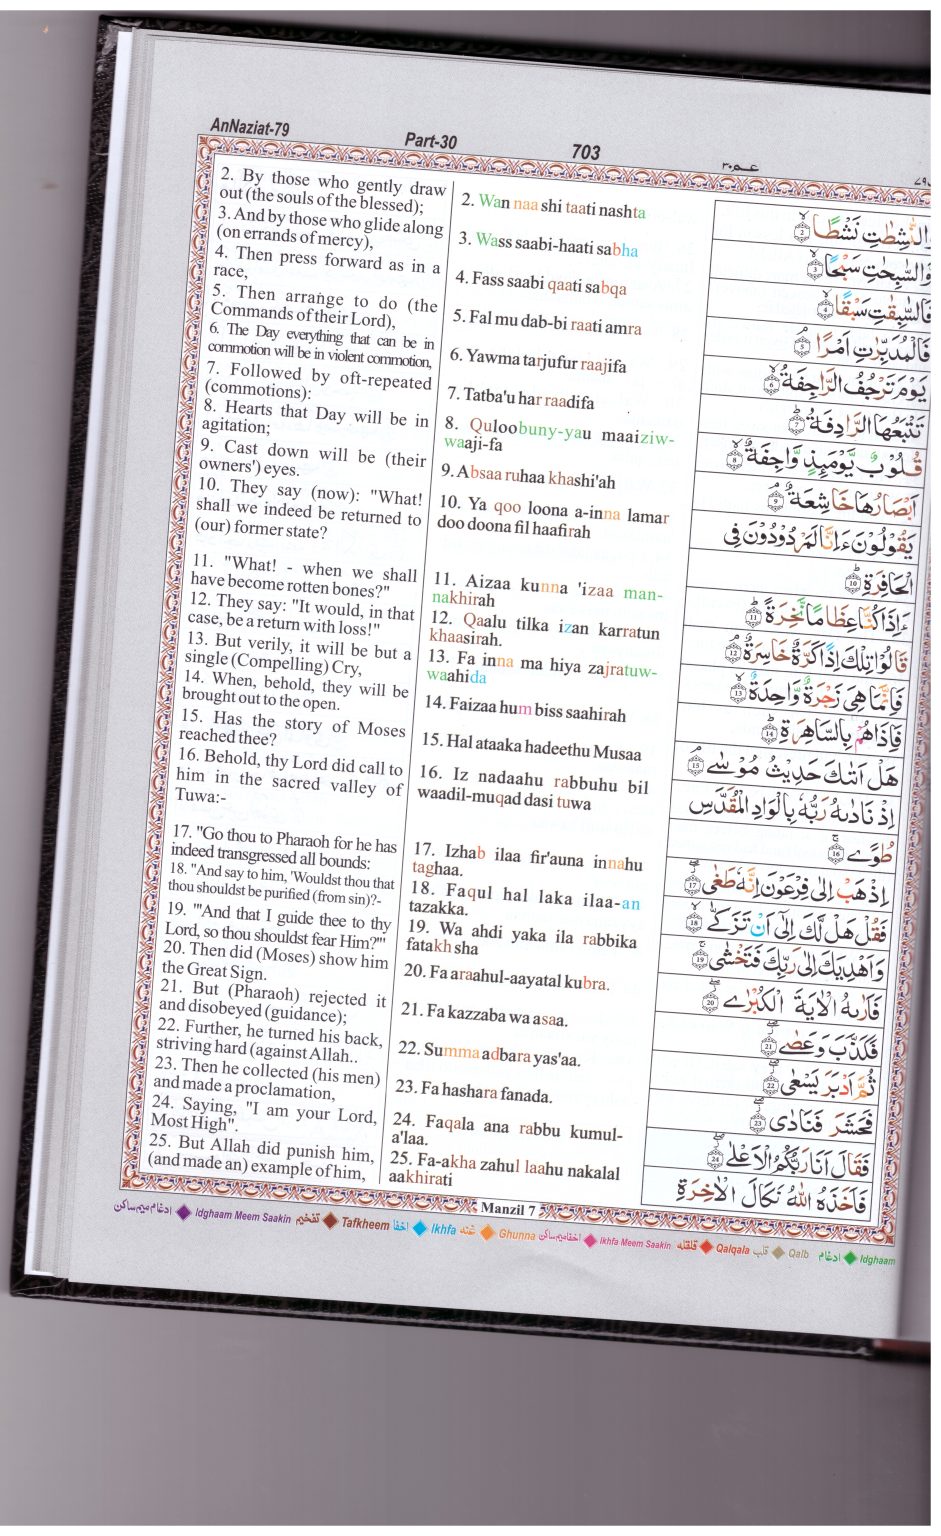 AnNaziat-79 Part-30 703 عـم ٣٠
2. By those who gently draw
out (the souls of the blessed);
3. And by those who glide along
(on errands of mercy),
4. Then press forward as in a
race,
5. Then arrange to do (the
Commands of their Lord),
6. The Day everything that can be in
commotion will be in violent commotion,
7. Followed by oft-repeated
(commotions):
8. Hearts that Day will be in
agitation;
9. Cast down will be (their
owners') eyes.
10. They say (now): "What!
shall we indeed be returned to
(our) former state?
11. "What! - when we shall
have become rotten bones?"
12. They say: "It would, in that
case, be a return with loss!"
13. But verily, it will be but a
single (Compelling) Cry,
14. When, behold, they will be
brought out to the open.
15. Has the story of Moses
reached thee?
16. Behold, thy Lord did call to
him in the sacred valley of
Tuwa:-
17. "Go thou to Pharaoh for he has
indeed transgressed all bounds:
18. "And say to him, 'Wouldst thou that
thou shouldst be purified (from sin)?-
19. "'And that I guide thee to thy
Lord, so thou shouldst fear Him?'"
20. Then did (Moses) show him
the Great Sign.
21. But (Pharaoh) rejected it
and disobeyed (guidance);
22. Further, he turned his back,
striving hard (against Allah..
23. Then he collected (his men)
and made a proclamation,
24. Saying, "I am your Lord,
Most High".
25. But Allah did punish him,
(and made an) example of him,
2. Wan naa shi taati nashta
3. Wass saabi-haati sabha
4. Fass saabi qaati sabqa
5. Fal mu dab-bi raati amra
6. Yawma tarjufur raajifa
7. Tatba'u har raadifa
8. Quloobuny-yau maaiziw-
waaji-fa
9. Absaa ruhaa khashi'ah
10. Ya qoo loona a-inna lamar
doo doona fil haafirah
11. Aizaa kunna 'izaa man-
nakhirah
12. Qaalu tilka izan karratun
khaasirah.
13. Fa inna ma hiya zajratuw-
waahida
14. Faizaa hum biss saahirah
15. Hal ataaka hadeethu Musaa
16. Iz nadaahu rabbuhu bil
waadil-muqad dasi tuwa
17. Izhab ilaa fir'auna innahu
taghaa.
18. Faqul hal laka ilaa-an
tazakka.
19. Wa ahdi yaka ila rabbika
fatakh sha
20. Fa araahul-aayatal kubra.
21. Fa kazzaba wa asaa.
22. Summa adbara yas'aa.
23. Fa hashara fanada.
24. Faqala ana rabbu kumul-
a'laa.
25. Fa-akha zahul laahu nakalal
aakhirati
وَالنّٰشِطٰتِ نَشْطًا ۙ﴿2﴾
وَالسّٰبِحٰتِ سَبْحًا ۙ﴿3﴾
فَالسّٰبِقٰتِ سَبْقًا ۙ﴿4﴾
فَالْمُدَبِّرٰتِ اَمْرًا ۘ﴿5﴾
يَوْمَ تَرْجُفُ الرَّاجِفَةُ ۙ﴿6﴾
تَتْبَعُهَا الرَّادِفَةُ ؕ﴿7﴾
قُلُوْبٌ يَّوْمَئِذٍ وَّاجِفَةٌ ۙ﴿8﴾
اَبْصَارُهَا خَاشِعَةٌ ۘ﴿9﴾
يَقُوْلُوْنَ ءَاِنَّا لَمَرْدُوْدُوْنَ فِى
الْحَافِرَةِ ؕ﴿10﴾
ءَاِذَا كُنَّا عِظَامًا نَّخِرَةً ؕ﴿11﴾
قَالُوْا تِلْكَ اِذًا كَرَّةٌ خَاسِرَةٌ ۘ﴿12﴾
فَاِنَّمَا هِىَ زَجْرَةٌ وَّاحِدَةٌ ۙ﴿13﴾
فَاِذَا هُمْ بِالسَّاهِرَةِ ؕ﴿14﴾
هَلْ اَتٰٮكَ حَدِيْثُ مُوْسٰى ۘ﴿15﴾
اِذْ نَادٰٮهُ رَبُّهٗ بِالْوَادِ الْمُقَدَّسِ
طُوًى ۚ﴿16﴾
اِذْهَبْ اِلٰى فِرْعَوْنَ اِنَّهٗ طَغٰى ۖ﴿17﴾
فَقُلْ هَلْ لَّكَ اِلٰٓى اَنْ تَزَكّٰى ۙ﴿18﴾
وَاَهْدِيَكَ اِلٰى رَبِّكَ فَتَخْشٰى ۚ﴿19﴾
فَاَرٰٮهُ الْاٰيَةَ الْكُبْرٰى ۖ﴿20﴾
فَكَذَّبَ وَعَصٰى ۖ﴿21﴾
ثُمَّ اَدْبَرَ يَسْعٰى ۖ﴿22﴾
فَحَشَرَ فَنَادٰى ۖ﴿23﴾
فَقَالَ اَنَا رَبُّكُمُ الْاَعْلٰى ۖ﴿24﴾
فَاَخَذَهُ اللّٰهُ نَكَالَ الْاٰخِرَةِ
Manzil 7
ادغام میم ساکن Idghaam Meem Saakin تفخیم Tafkheem اخفا Ikhfa غنه Ghunna اخفا میم ساکن Ikhfa Meem Saakin قلقله Qalqala قلب Qalb ادغام Idghaam